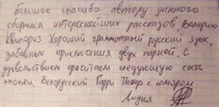 Большое спасибо автору данного
сборника интереснейших рассказов Валерию
Квилория. Хороший грамотный русский язык,
забавные приключения двух парней. С
удовольствием прочтем следующую часть
Белорусский Гарри Поттер с юмором
Лидия